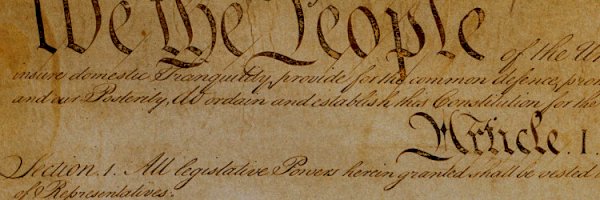 We the People of the Un
insure domestic Tranquility, provide for the common defence, prom
and our Posterity, do ordain and establish this Constitution for the
Article. I.
Section. 1. All legislative Powers herein granted shall be vested
of Representatives.